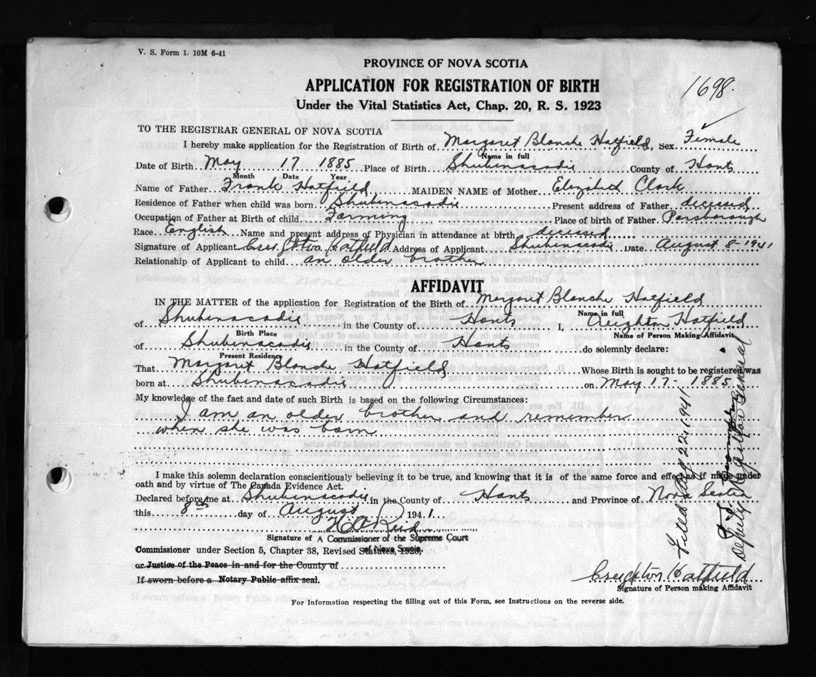 V. S. Form 1. 10M 6-41
PROVINCE OF NOVA SCOTIA
1698.
APPLICATION FOR REGISTRATION OF BIRTH
Under the Vital Statistics Act, Chap. 20, R. S. 1923
TO THE REGISTRAR GENERAL OF NOVA SCOTIA
I hereby make application for the Registration of Birth of Margaret Blanche Hatfield, Sex Female
Name in full
Date of Birth May 17 1885 Place of Birth Shubenacadie County of Hants
Month Date Year
Name of Father Frank Hatfield MAIDEN NAME of Mother Elizabeth Clark
Residence of Father when child was born Shubenacadie Present address of Father deceased
Occupation of Father at Birth of child Farming Place of birth of Father Parsborough
Race English Name and present address of Physician in attendance at birth deceased
Signature of Applicant Creighton Hatfield Address of Applicant Shubenacadie Date August 8-1941
Relationship of Applicant to child an older brother
AFFIDAVIT
IN THE MATTER of the application for Registration of the Birth of Margaret Blanche Hatfield
Name in full
of Shubenacadie in the County of Hants I, Creighton Hatfield
Birth Place Name of Person Making Affidavit
of Shubenacadie in the County of Hants do solemnly declare:
Present Residence
That Margaret Blanche Hatfield Whose Birth is sought to be registered was
born at Shubenacadie on May 17 1885
My knowledge of the fact and date of such Birth is based on the following Circumstances:
I am an older brother and remember
when she was born
I make this solemn declaration conscientiously believing it to be true, and knowing that it is of the same force and effect as if made under
oath and by virtue of The Canada Evidence Act.
Declared before me at Shubenacadie in the County of Hants and Province of Nova Scotia
this 8th day of August 1941.
H A Reid
Signature of A Commissioner of the Supreme Court
of Nova Scotia,
Commissioner under Section 5, Chapter 38, Revised Statutes, 1923,
or Justice of the Peace in and for the County of
If sworn before a Notary Public affix seal.
Creighton Hatfield
Signature of Person making Affidavit
For Information respecting the filling out of this Form, see Instructions on the reverse side.
Filed 22 1941
Deputy Registrar General